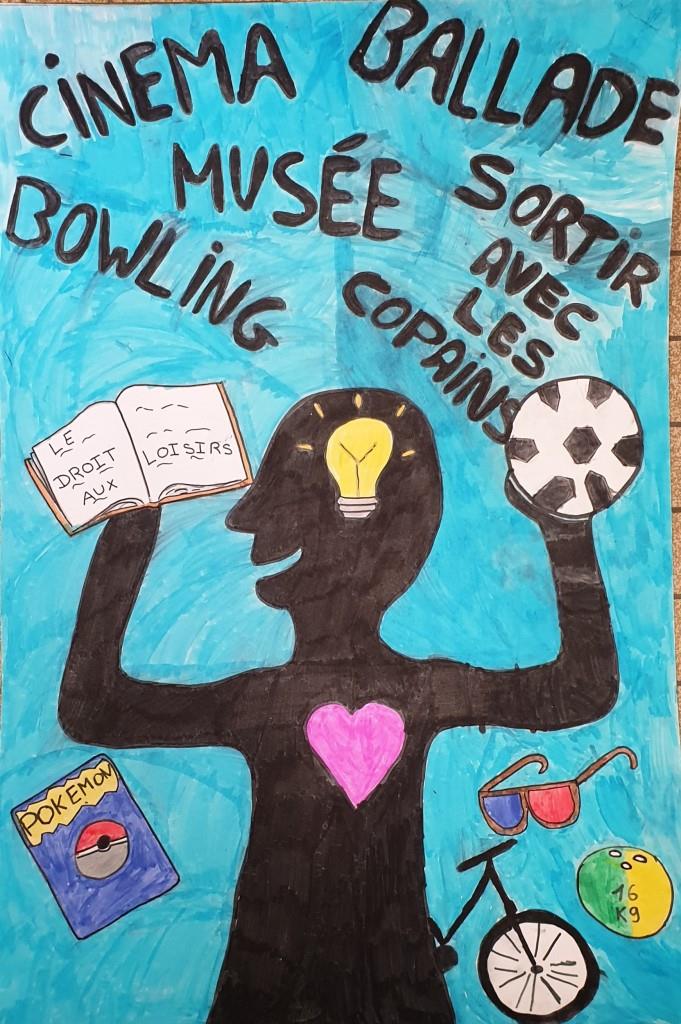 CiNEMA
BALLADE
MUSÉE
BOWLiNG
SORTiR
AVEC
LES
COPAiNS
LE
DROIT
AUX
LOISIRS
POKEMON
16
Kg